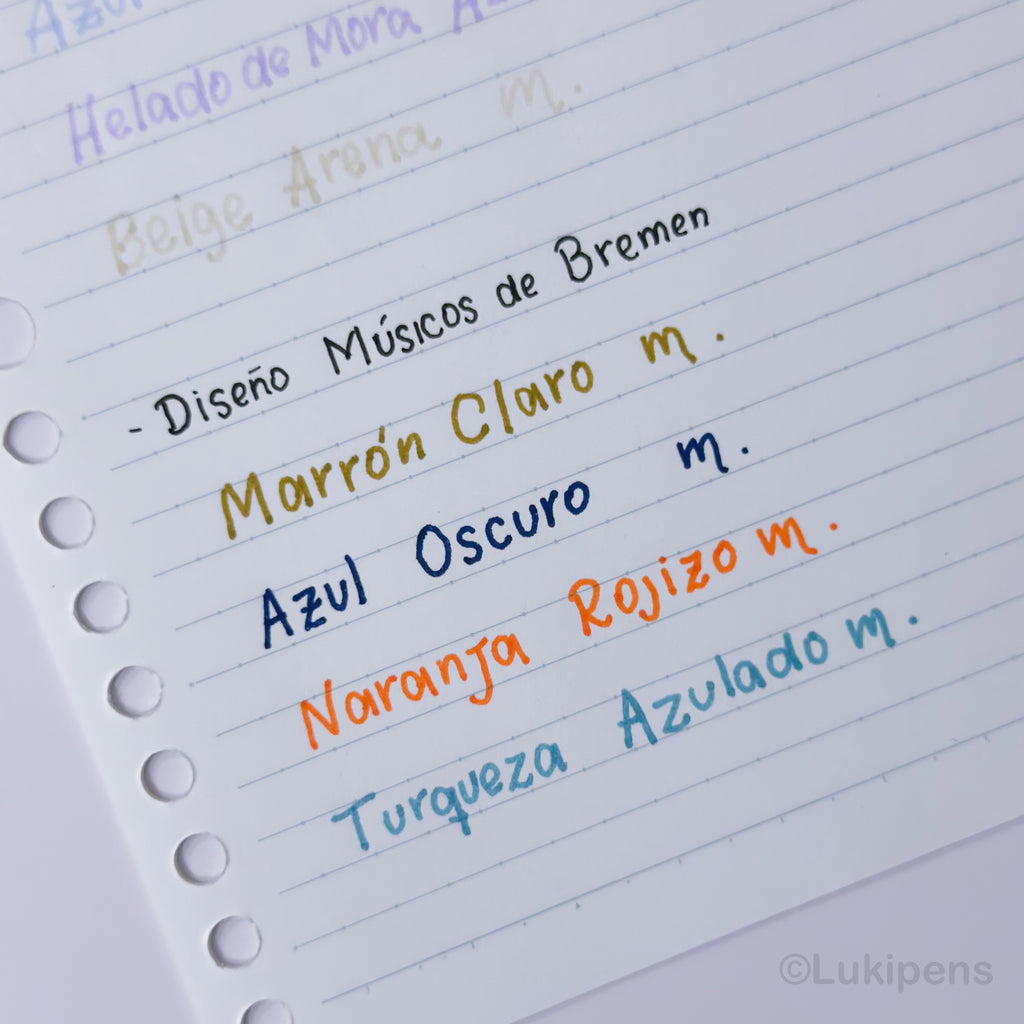 Azul
Helado de Mora
Beige Arena m.
- Diseño Músicos de Bremen
Marrón Claro m.
Azul Oscuro m.
Naranja Rojizo m.
Turqueza Azulado m.
©Lukipens